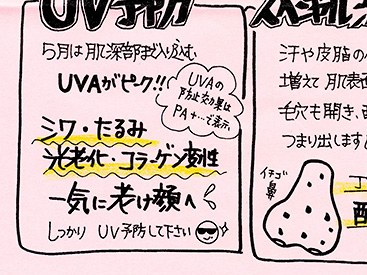 UV予防
5月は肌深部まで入り込む
UVAがピーク!!
UVAの
防止効果は
PA+…で表示
シワ・たるみ
光老化・コラーゲン変性
一気に老け顔へ
しっかり UV予防して下さい
スペシャル
汗や皮脂の
増えて 肌表面
毛穴も開き、
つまり出します
イチゴ
鼻